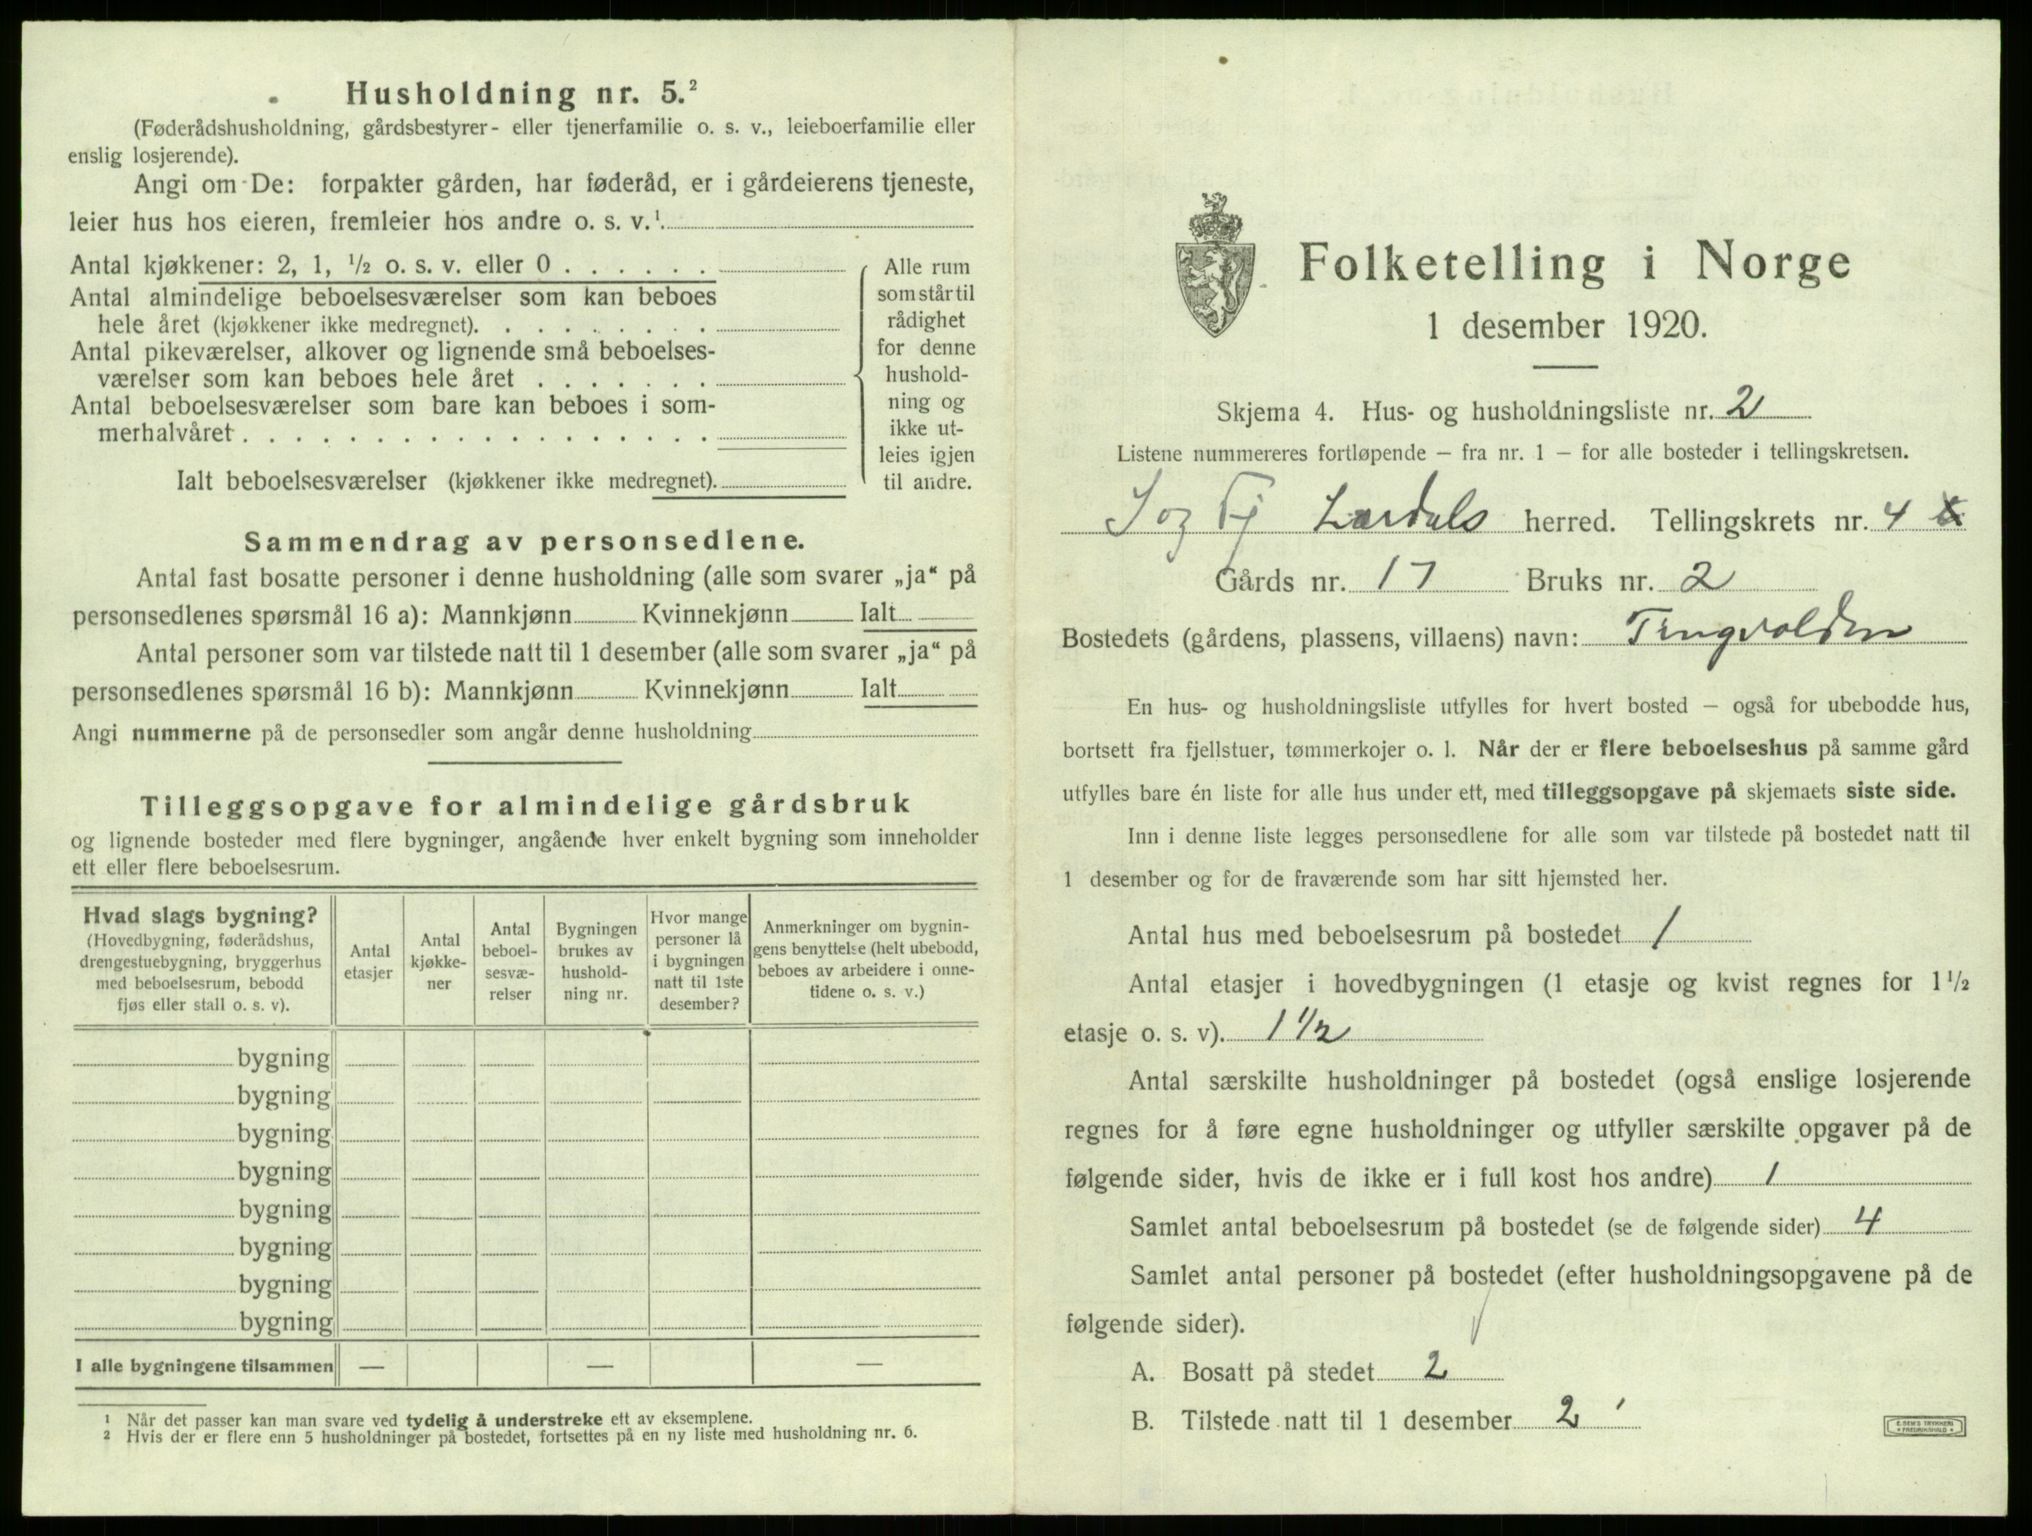 Husholdning nr. 5.²
(Føderådshusholdning, gårdsbestyrer- eller tjenerfamilie o. s. v., leieboerfamilie eller
enslig losjerende).
Angi om De: forpakter gården, har føderåd, er i gårdeierens tjeneste,
leier hus hos eieren, fremleier hos andre o. s. v.¹
Antal kjøkkener: 2, 1, ½ o. s. v. eller 0 . . . . . .
Antal almindelige beboelsesværelser som kan beboes
hele året (kjøkkener ikke medregnet). . . . . . . . .
Antal pikeværelser, alkover og lignende små beboelses-
værelser som kan beboes hele året . . . . . . .
Antal beboelsesværelser som bare kan beboes i som-
merhalvåret . . . . . . . . . . . . . . . . . .
Ialt beboelsesværelser (kjøkkener ikke medregnet).
Alle rum
som står til
rådighet
for denne
hushold-
ning og
ikke ut-
leies igjen
til andre.
Sammendrag av personsedlene.
Antal fast bosatte personer i denne husholdning (alle som svarer „ja“ på
personsedlenes spørsmål 16 a): Mannkjønn Kvinnekjønn Ialt
Antal personer som var tilstede natt til 1 desember (alle som svarer „ja“ på
personsedlenes spørsmål 16 b): Mannkjønn Kvinnekjønn Ialt
Angi nummerne på de personsedler som angår denne husholdning
Tilleggsopgave for almindelige gårdsbruk
og lignende bosteder med flere bygninger, angående hver enkelt bygning som inneholder
ett eller flere beboelsesrum.
Hvad slags bygning?
(Hovedbygning, føderådshus,
drengestuebygning, bryggerhus
med beboelsesrum, bebodd
fjøs eller stall o. s. v).
Antal
etasjer
Antal
kjøkke-
ner
Antal
beboel-
sesvæ-
relser
Bygningen
brukes av
hushold-
ning nr.
Hvor mange
personer lå
i bygningen
natt til 1ste
desember?
Anmerkninger om bygnin-
gens benyttelse (helt ubebodd,
beboes av arbeidere i onne-
tidene o. s. v.)
bygning
bygning
bygning
bygning
bygning
bygning
bygning
bygning
I alle bygningene tilsammen — — —
¹ Når det passer kan man svare ved tydelig å understreke ett av eksemplene.
² Hvis der er flere enn 5 husholdninger på bostedet, fortsettes på en ny liste med husholdning nr. 6.
Folketelling i Norge
1 desember 1920.
Skjema 4. Hus- og husholdningsliste nr. 2
Listene nummereres fortløpende – fra nr. 1 – for alle bosteder i tellingskretsen.
Sog Fj Lærdals herred. Tellingskrets nr. 4
Gårds nr. 17 Bruks nr. 2
Bostedets (gårdens, plassens, villaens) navn: Tingvolden
En hus- og husholdningsliste utfylles for hvert bosted – også for ubebodde hus,
bortsett fra fjellstuer, tømmerkojer o. l. Når der er flere beboelseshus på samme gård
utfylles bare én liste for alle hus under ett, med tilleggsopgave på skjemaets siste side.
Inn i denne liste legges personsedlene for alle som var tilstede på bostedet natt til
1 desember og for de fraværende som har sitt hjemsted her.
Antal hus med beboelsesrum på bostedet 1
Antal etasjer i hovedbygningen (1 etasje og kvist regnes for 1½
etasje o. s. v). 1½
Antal særskilte husholdninger på bostedet (også enslige losjerende
regnes for å føre egne husholdninger og utfyller særskilte opgaver på de
følgende sider, hvis de ikke er i full kost hos andre) 1
Samlet antal beboelsesrum på bostedet (se de følgende sider) 4
Samlet antal personer på bostedet (efter husholdningsopgavene på de
følgende sider).
A. Bosatt på stedet 2
B. Tilstede natt til 1 desember 2
E. SEM'S TRYKKERI
• FREDRIKSHALD •